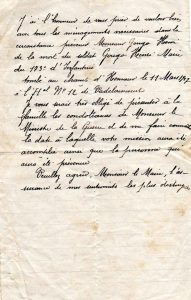 J'ai l'honneur de vous prier de vouloir bien,
avec tous les ménagements nécessaires dans la
circonstance prévenir Monsieur Henri
de la mort du soldat Henri Marie
du 132e d'Infanterie
tombé au champ d'Honneur le 11 Mars 1917
à l'
Je vous serais très obligé de présenter à la
famille les condoléances de Monsieur le
Ministre de la Guerre et de me faire connaître
la date à laquelle votre mission aura été
accomplie ainsi que la personne qui
aura été prévenue
Veuillez agréer, Monsieur le Maire, l'as-
surance de mes sentiments les plus distingués